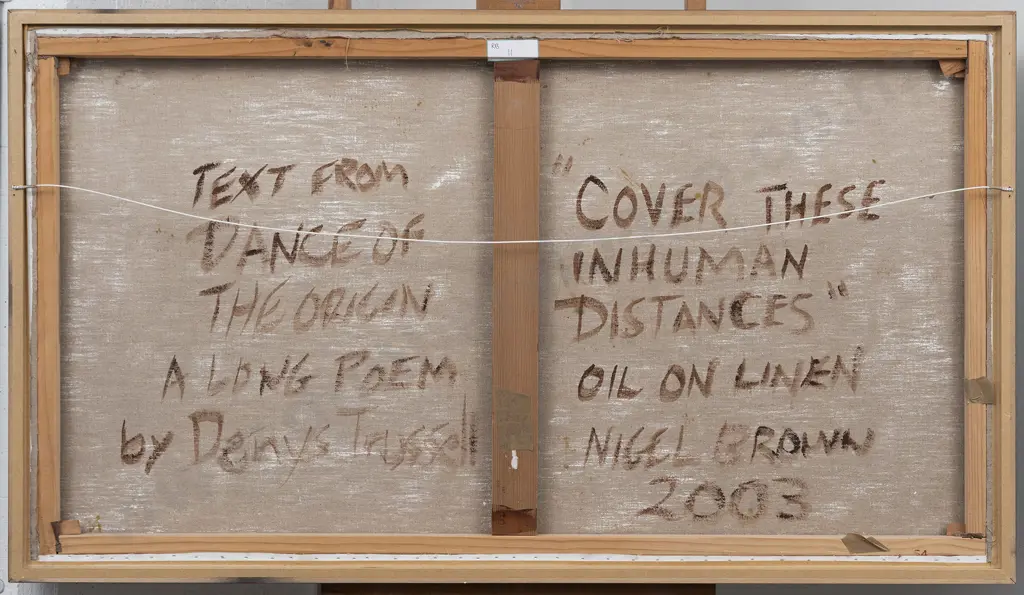 RB
11
TEXT FROM
DANCE OF
THE ORIGIN
A LONG POEM
by Denys Trussell
"COVER THESE
INHUMAN
DISTANCES"
OIL ON LINEN
NIGEL BROWN
2003